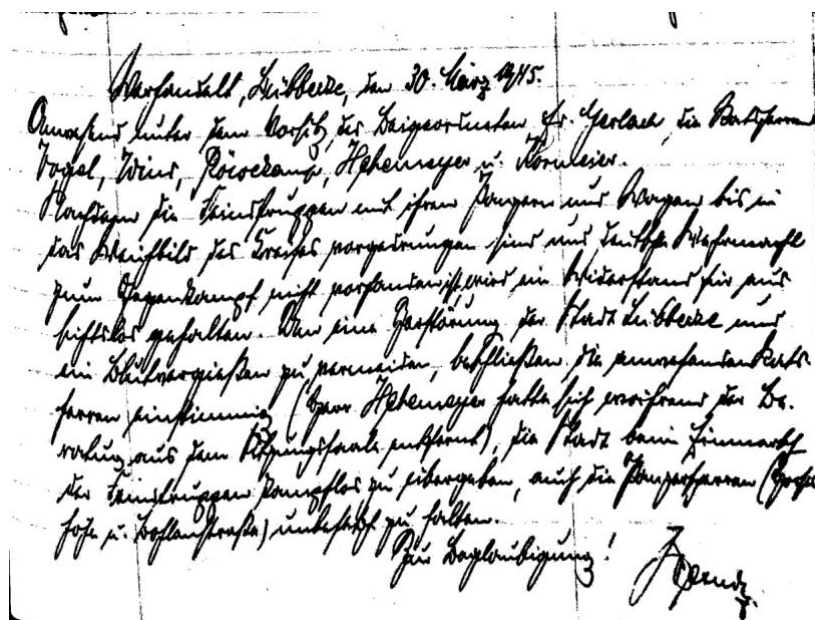 Verhandelt, Lübbecke, den 30. März 1945.
Anwesend unter dem Vorsitz des Beigeordneten Hr. Gerlach, die Ratsherren
Vogel, Wind, Röwekamp, Hehemeyer u. Körmeier.
Nachdem die Feindtruppen mit ihren Panzern und Wagen bis in
das Weichbild des Kreises vorgedrungen sind und deutsche Wehrmacht
zum Gegenkampf nicht vorhanden ist, wird ein Widerstand für aus
sichtslos gehalten. Um eine Zerstörung der Stadt Lübbecke und
ein Blutvergießen zu vermeiden, beschließen die anwesenden Rats-
herren einstimmig (Herr Hehemeyer hatte sich während der Be-
ratung aus dem Sitzungssaale entfernt), die Stadt beim Einmarsch
der Feindtruppen kampflos zu übergeben, auch die Panzersperren
u. Bohlenstraße) unbesetzt zu halten.
Zur Beglaubigung!